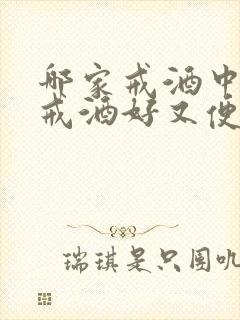 那家戒酒中
戒酒好又便
瑞琪是只图叽